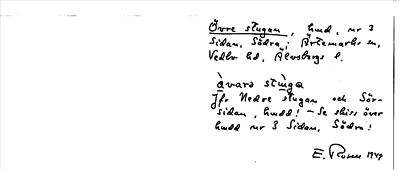 Övre stugan, hmd. nr 3
Sidan, Södra; Ärtemarks sn,
Vedbo hd, Älvsborgs l.
àvarə stùga
Jfr Nedre stugan och Sör-
sidan, hmdd! – Se skiss över
hmdd nr 3 Sidan, Södra!
E. Rosen 1949